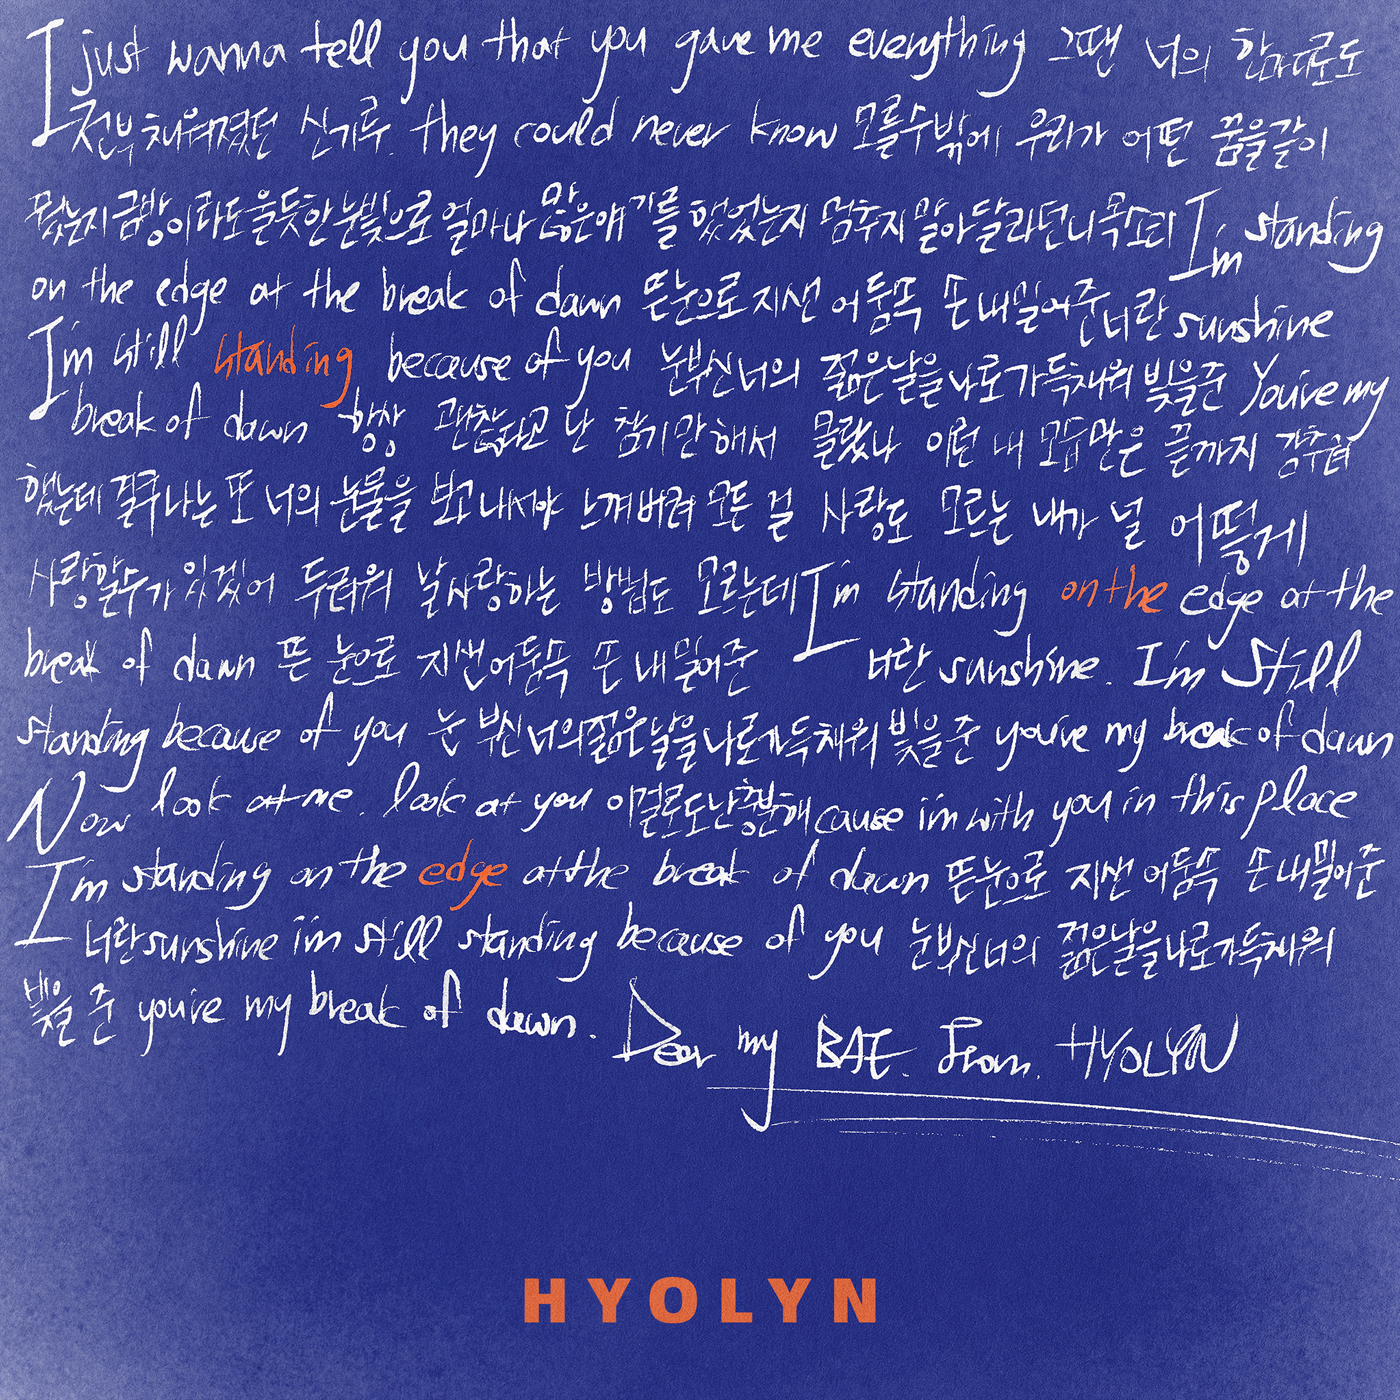 I just wanna tell you that you gave me everything 그땐 너의 한마디로도
전부 채워졌던 신기루. they could never know 모를수밖에 우리가 어떤 꿈을같이
꿨는지 금방이라도 울듯한 눈빛으로 얼마나 많은 얘기를 했었는지 멈추지 말아달라던 니 목소리 I'm standing
on the edge at the break of dawn 뜬눈으로 지샌 어둠속 손내밀어준 너란 sunshine
I'm still standing because of you 눈부신 너의 젊은날을 나로가득채워 빛을준 You're my
break of dawn 항상 괜찮다고 난 참기만해서 몰랐나 이런 내 모습 끝까지 감추려
했는데 결국 나는 또 너의 눈물을 보고 내서야 느껴버려 모든 걸 사랑도 모르는 내가 널 어떻게
사랑할수가 있겠어 두려워 날사랑하는 방법도 모르는데 I'm standing on the edge at the
break of dawn 뜬 눈으로 지샌어둠속 손 내밀어준 너란 sunshine. I'm Still
standing because of you 눈 부신 너의젊은날을나로가득채워 빛을준 you're my break of dawn
Now look at me. look at you 이걸로도난충분해 cause i'm with you in this place
I'm standing on the edge at the break of dawn 뜬눈으로 지샌 어둠속 손 내밀어준
너란 sunshine i'm still standing because of you 눈부신너의 젊은날을나로가득채워
빛을 준 you're my break of dawn. Dear my BAE. From. HYOLYN
HYOLYN